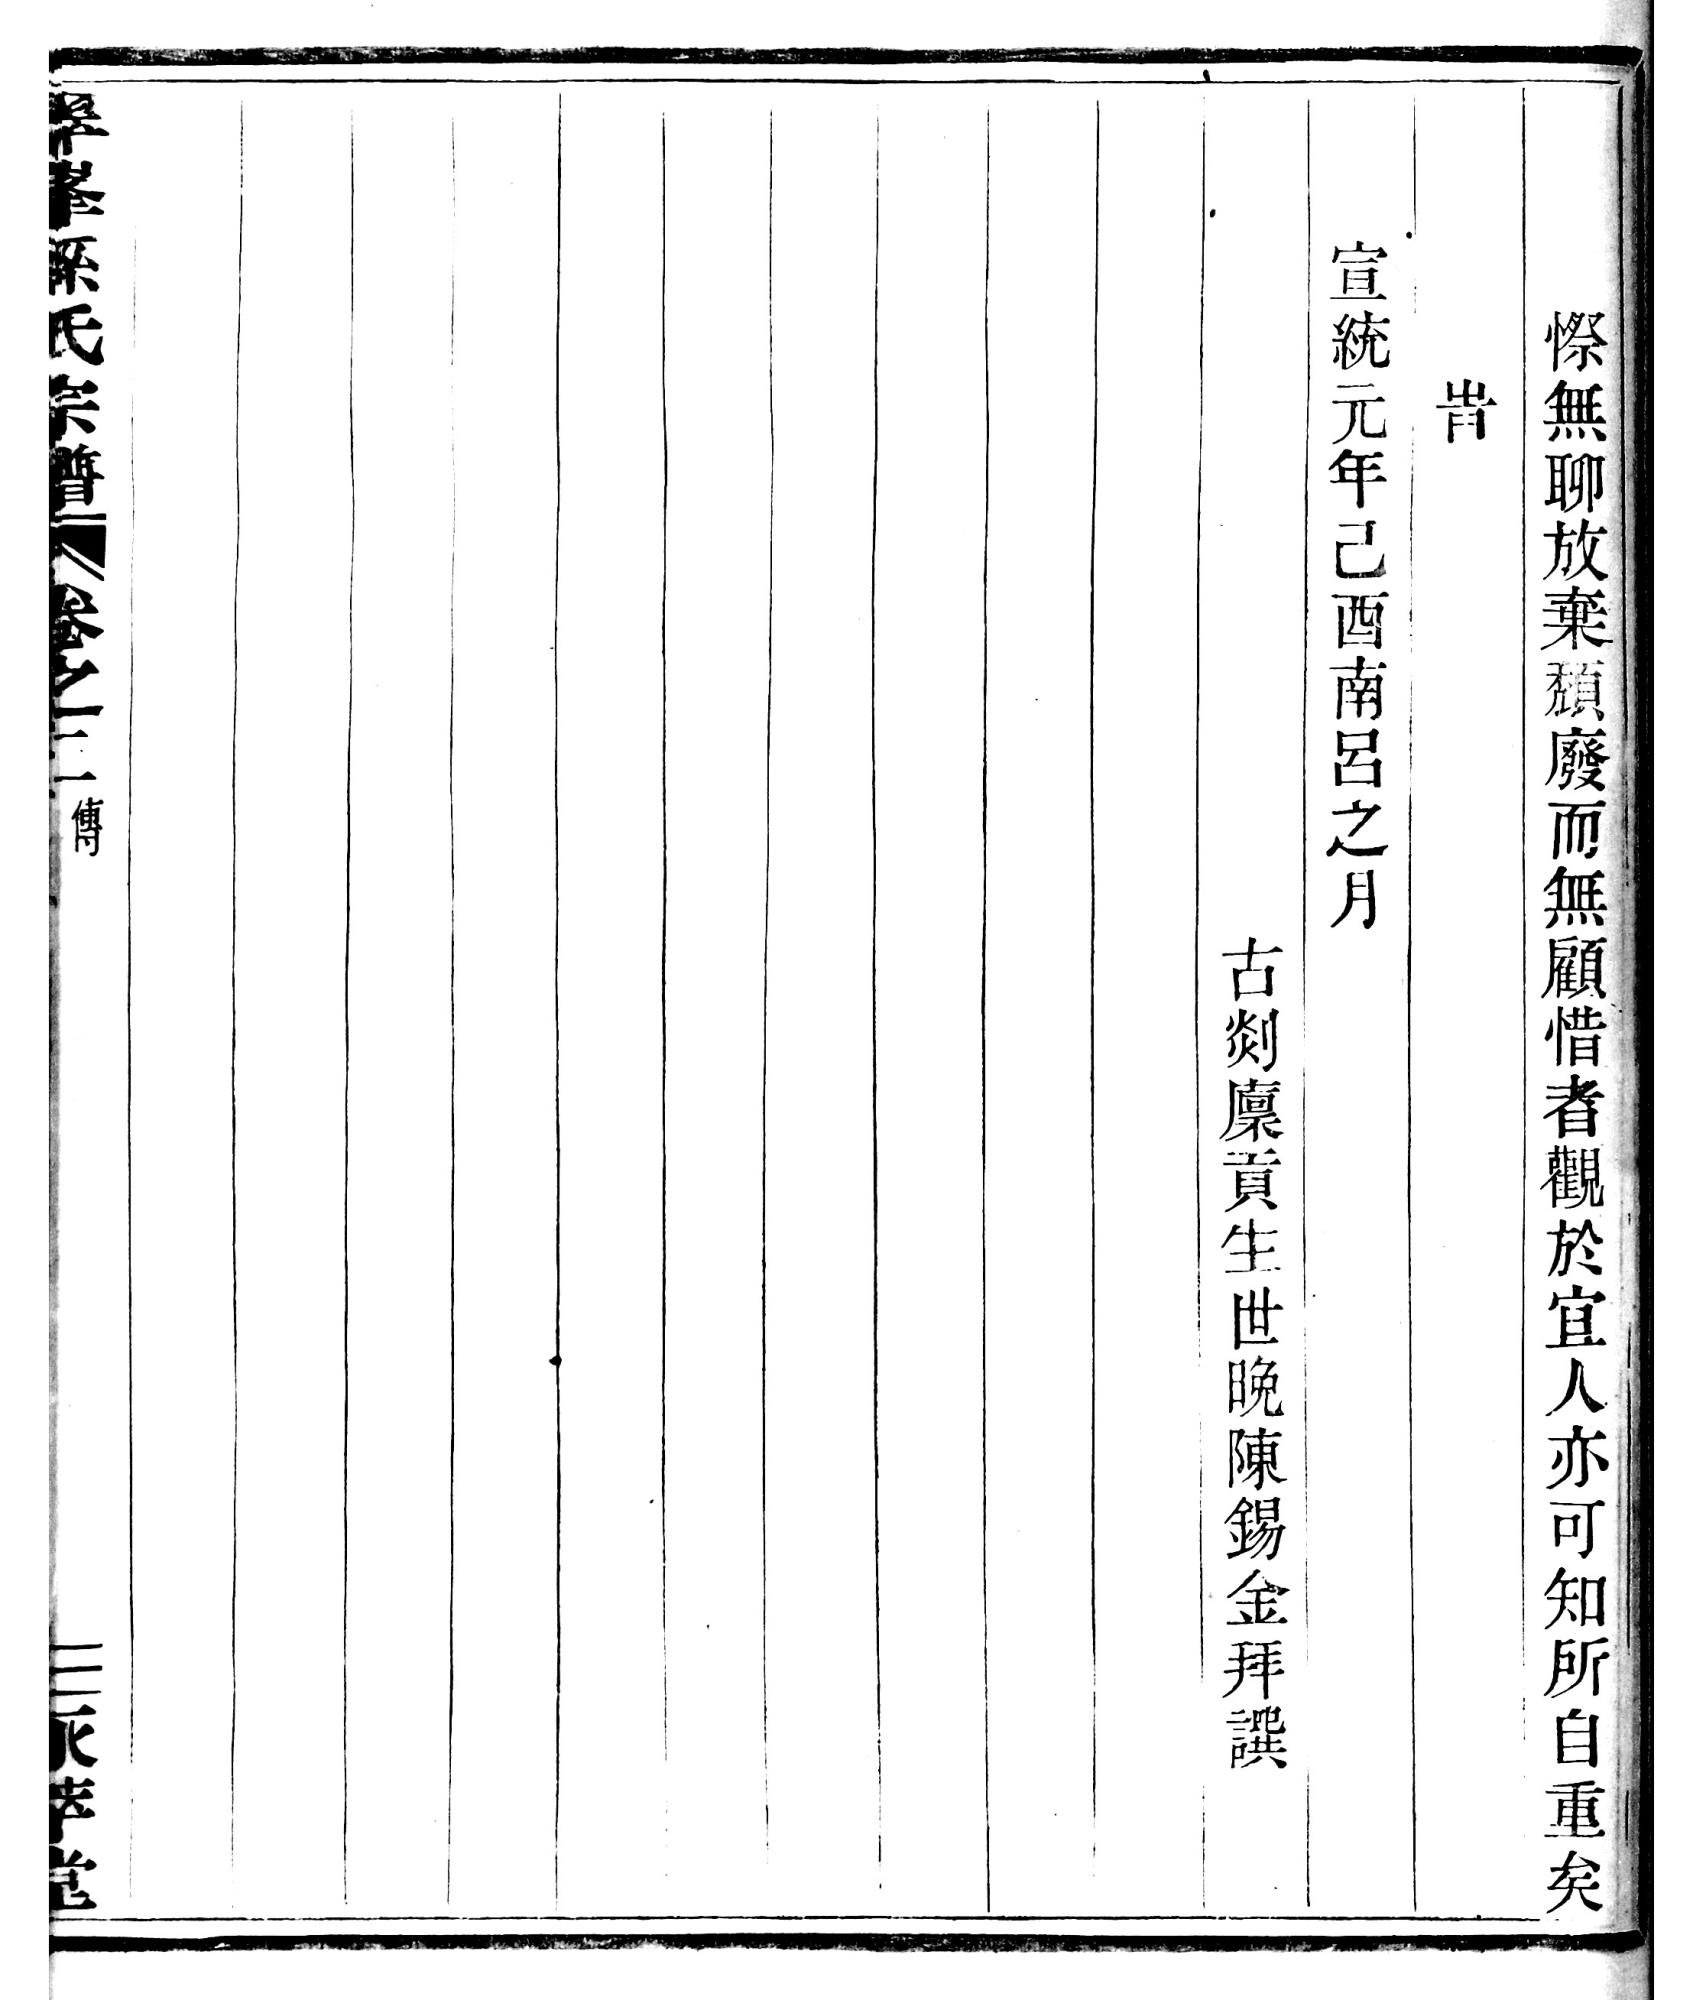 憏無聊放棄頽廢而無顧惜者觀於宜人亦可知所自重矣
旹
宣統元年己酉南呂之月
古剡廩貢生世晚陳錫金拜譔
峯孫氏宗譜
卷之二
傳
堂